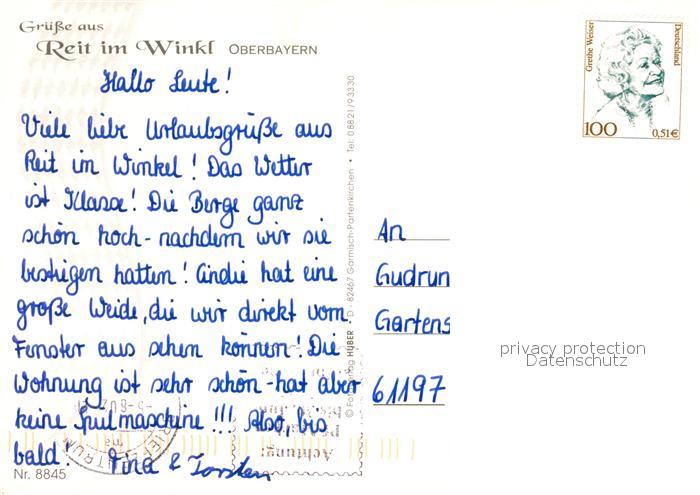 Grüße aus
Reit im Winkl OBERBAYERN
Hallo Leute!
Viele liebe Urlaubsgrüße aus
Reit im Winkel! Das Wetter
ist Klasse! Die Berge ganz
schön hoch - nachdem wir sie
bestiegen hatten! Cindie hat eine
große Weide, die wir direkt vom
Fenster aus sehen können! Die
Wohnung ist sehr schön - hat aber
keine Spülmaschine!!! Also, bis
bald! Tina & Torsten
Nr. 8845
© Fotoverlag HUBER · D - 82467 Garmisch-Partenkirchen · Tel. 08821/93330
Grethe Weiser
Deutschland
100 0,51€
An
Gudrun
Gartens
61197
privacy protection
Datenschutz
Achtung: